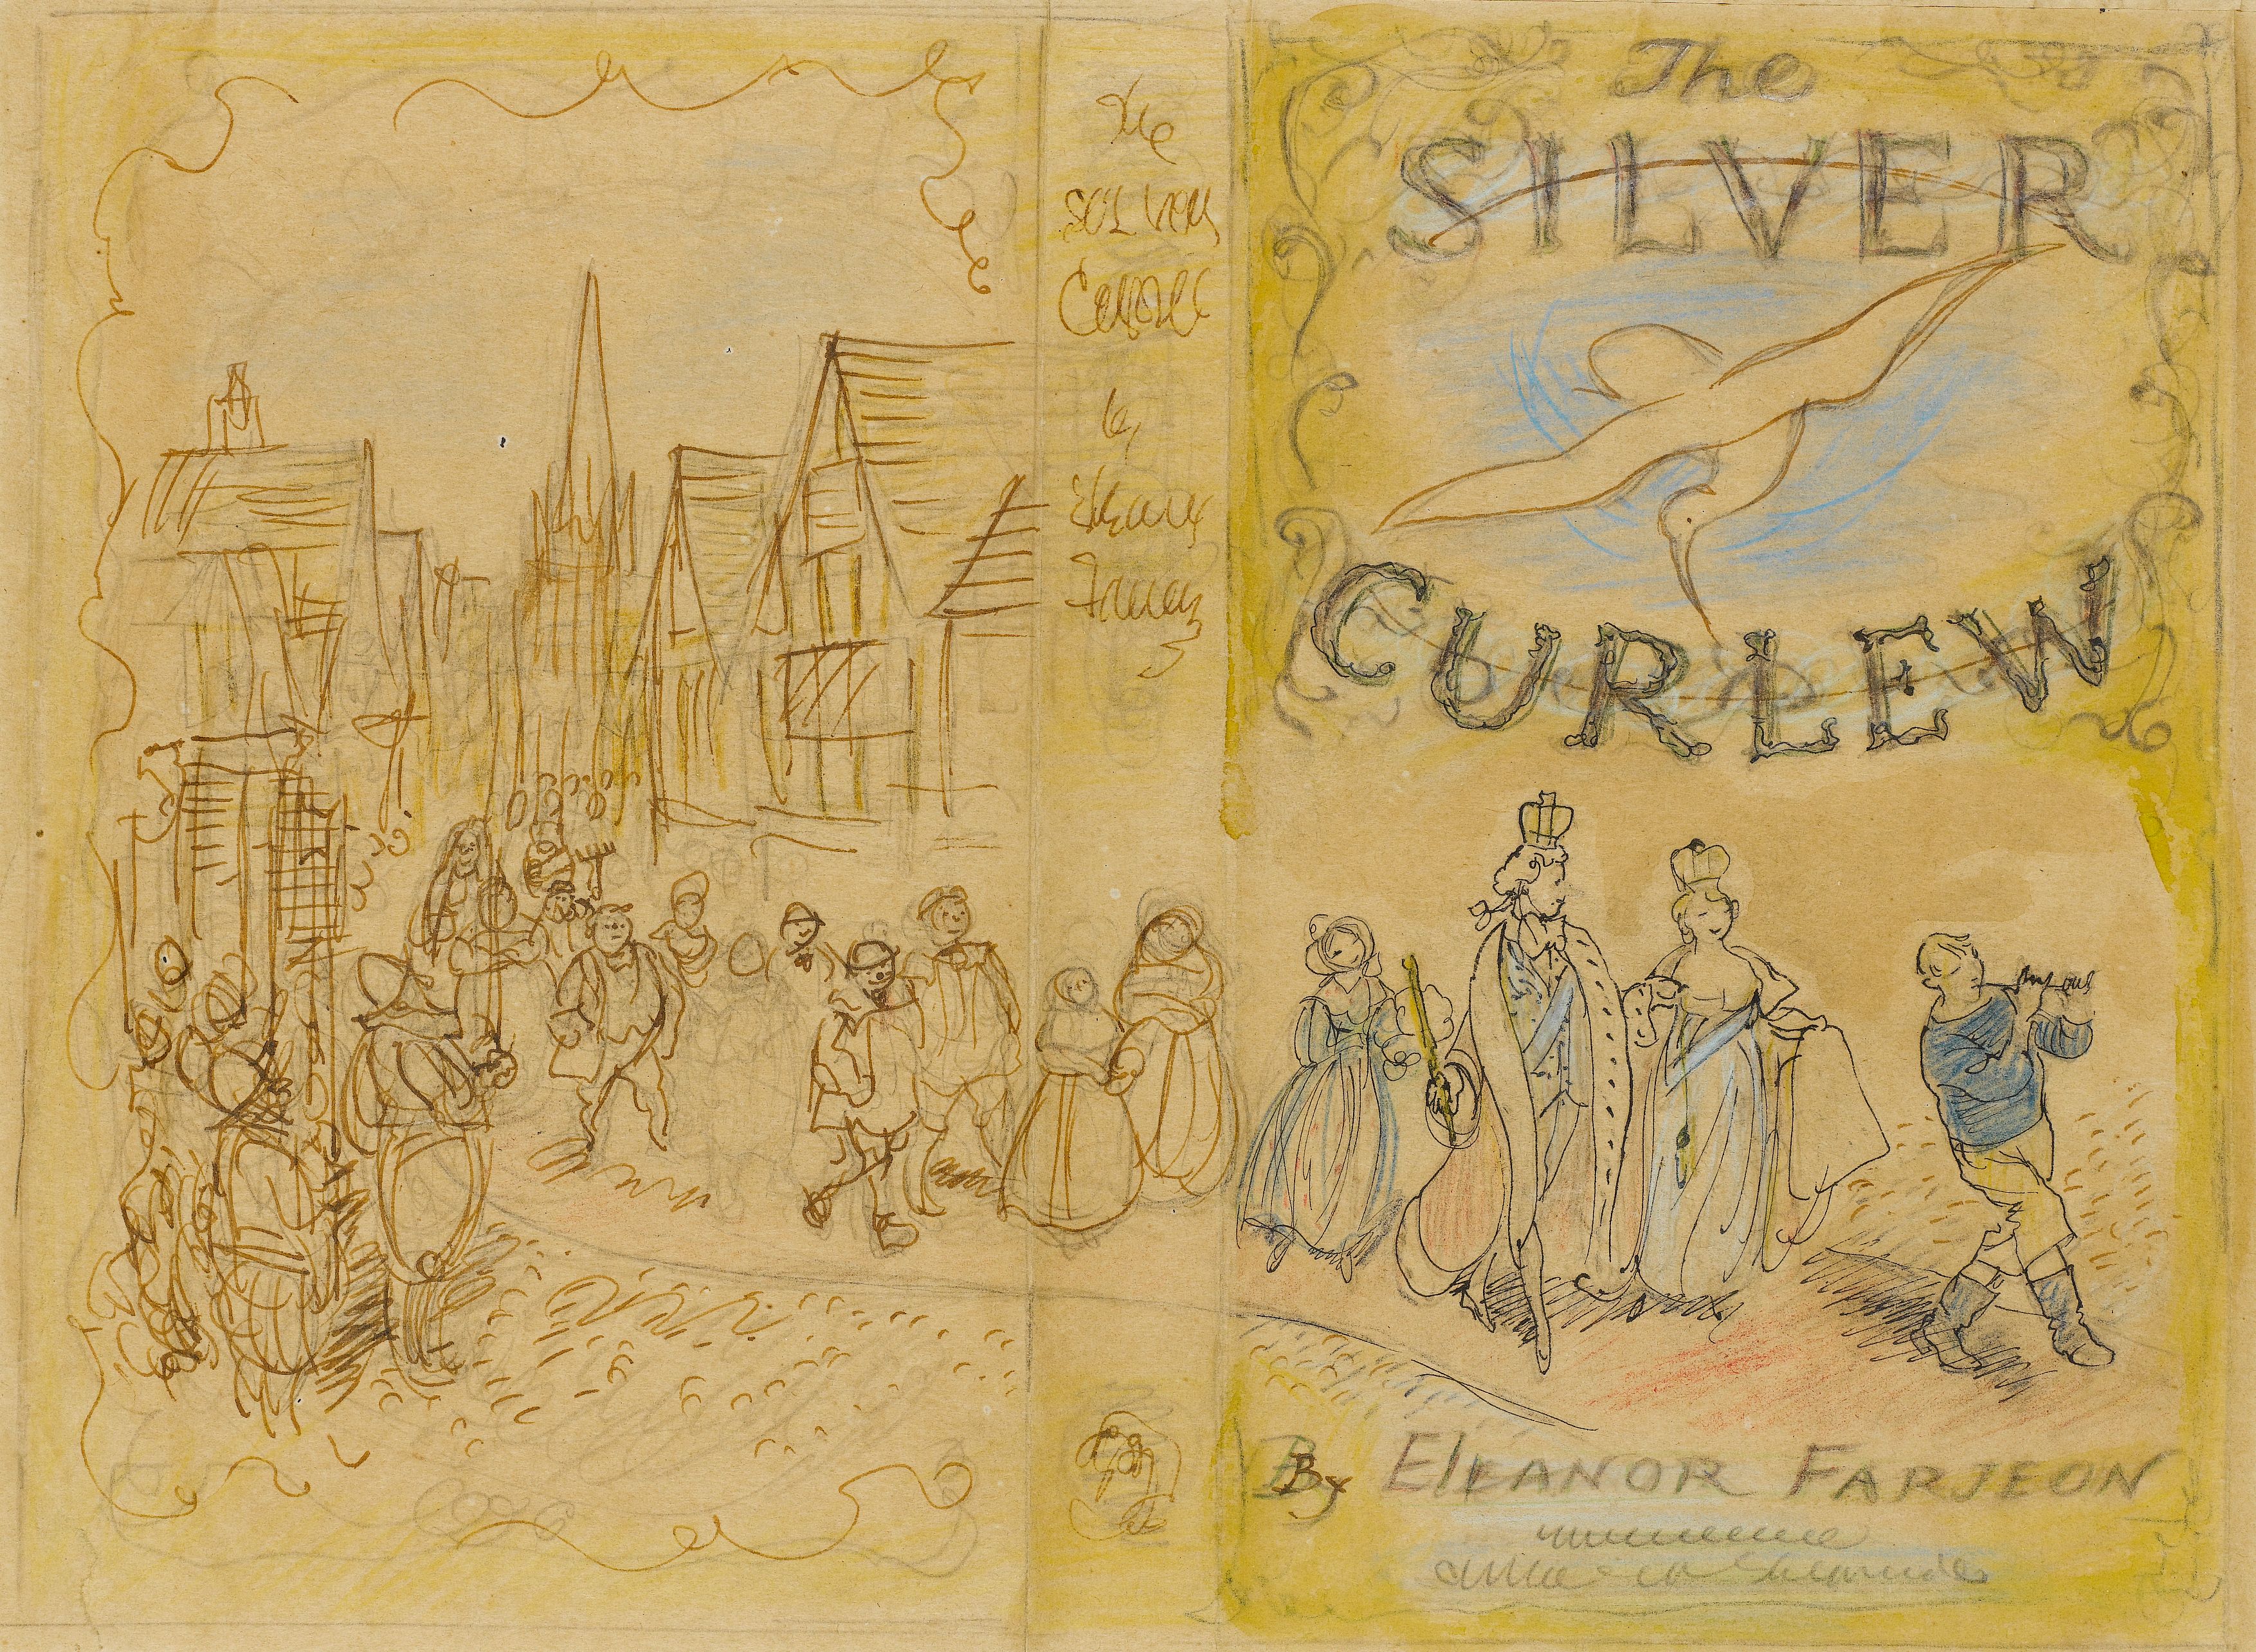 The
SILVER
CURLEW
By ELEANOR FARJEON
The
SILVER
Curlew
by
Eleanor
Farjeon